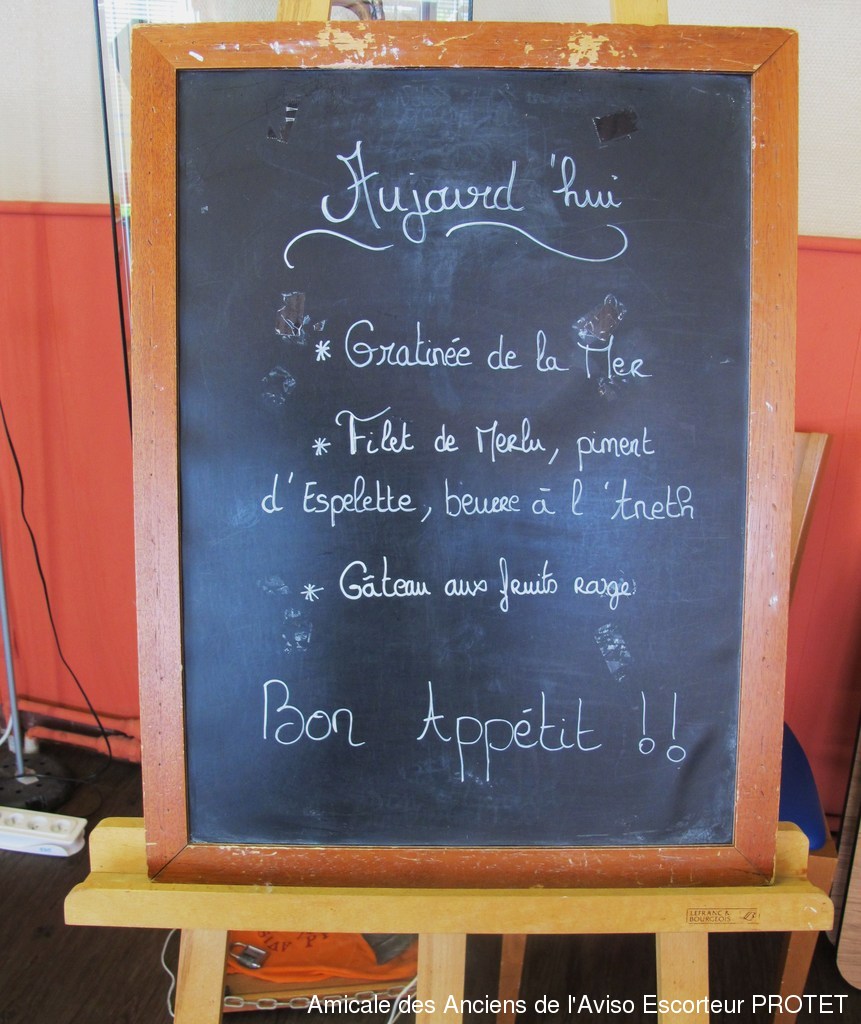 Aujourd'hui
* Gratinée de la Mer
* Filet de Merlu, piment
d'Espelette, beurre à l'Aneth
* Gâteau aux fruits rouge
Bon Appétit !!
LEFRANC &
BOURGEOIS
Amicale des Anciens de l'Aviso Escorteur PROTET